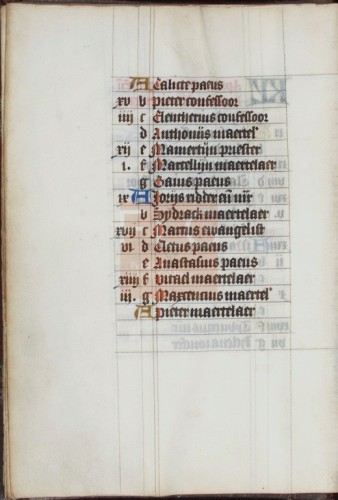 A Calicte paeus
xv b pieter confessoor
iiij c Eleutherius confessoor
d Anthoniis maertel'
xij e Mamertijn priester
i. f Marcellijn maertelaer
g Gaius paeus
ix A Jorijs ridder en̄ m̄r
b Sydrack maertelaer
xvij c Marcus ewangelist
vi d Cletus paeus
e Anastasius paeus
xiiij f vitael maertelaer
iij. g Maxencius maertel'
A pieter maertelaer